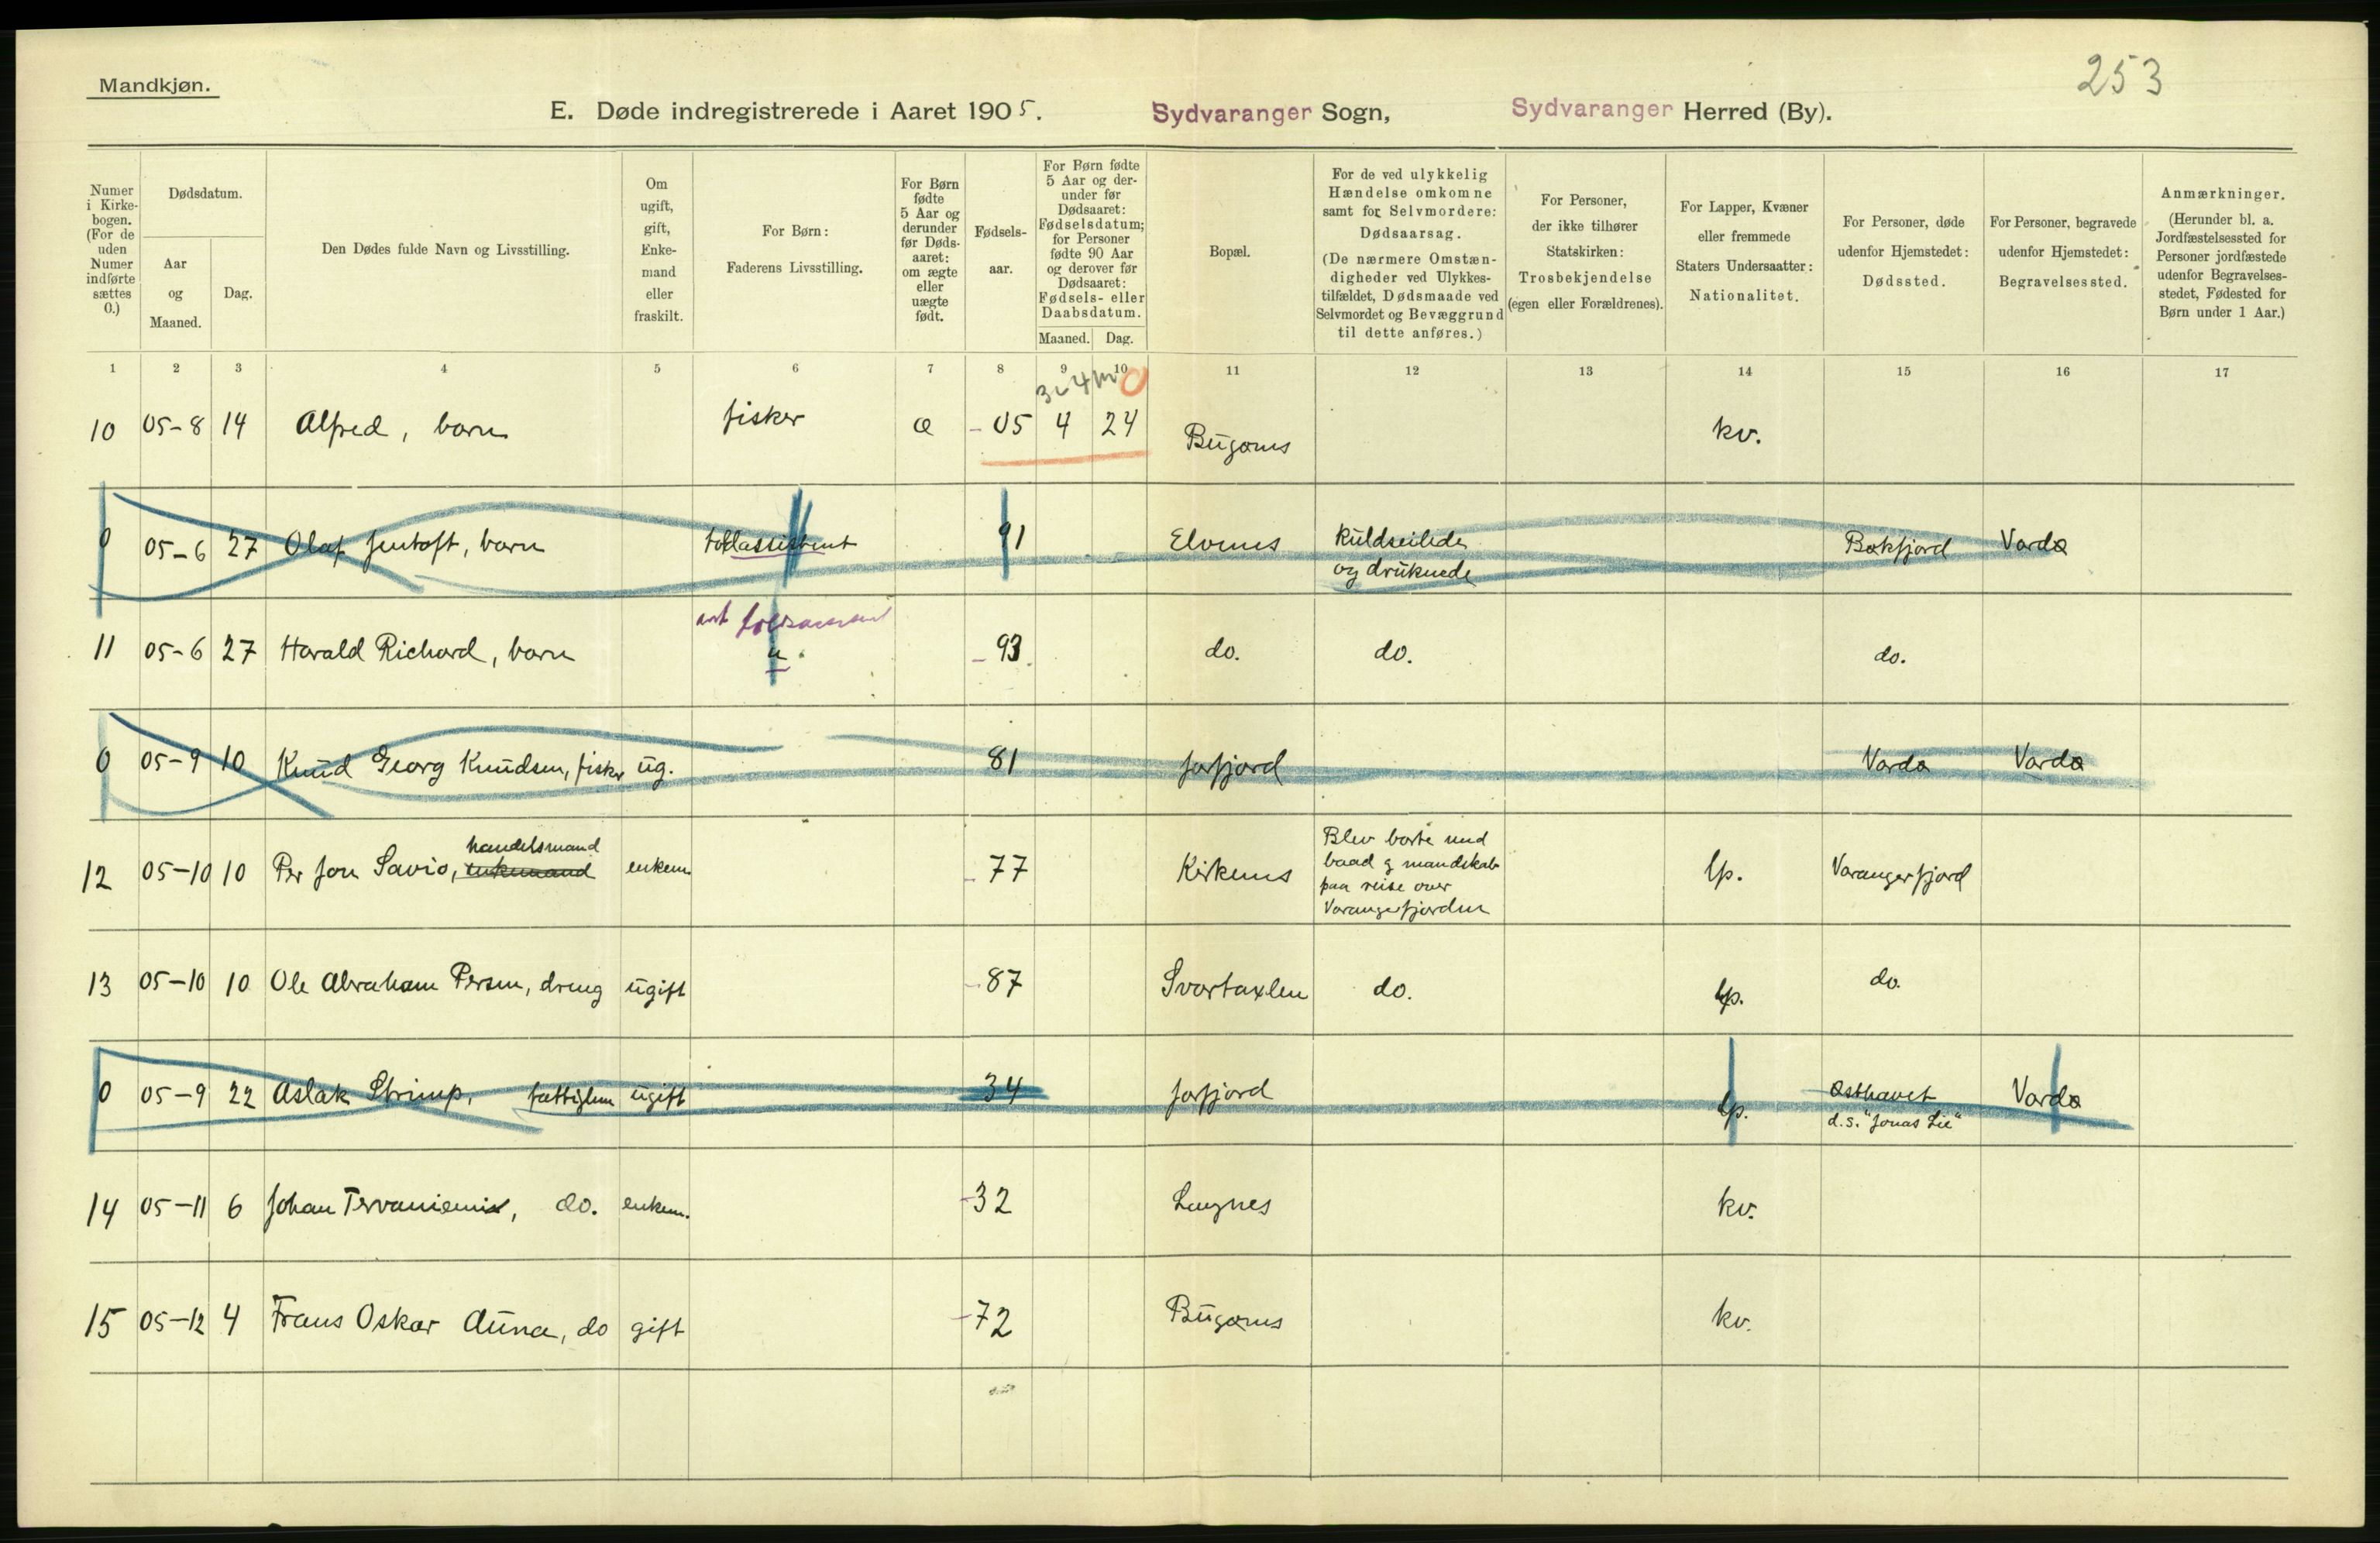 253
Mandkjøn.
E. Døde indregistrerede i Aaret 1905. Sydvaranger Sogn, Sydvaranger Herred (By).
Numer i Kirke-bogen. (For de uden Numer indførte sættes 0.)
Dødsdatum.
Aar og Maaned.
Dag.
Den Dødes fulde Navn og Livsstilling.
Om ugift, gift, Enke-mand eller fraskilt.
For Børn: Faderens Livsstilling.
For Børn fødte 5 Aar og derunder før Døds-aaret: om ægte eller uægte født.
Fødsels-aar.
For Børn fødte 5 Aar og der-under før Dødsaaret: Fødselsdatum; for Personer fødte 90 Aar og derover før Dødsaaret: Fødsels- eller Daabsdatum.
Maaned. Dag.
Bopæl.
For de ved ulykkelig Hændelse omkomne samt for Selvmordere: Dødsaarsag. (De nærmere Omstæn-digheder ved Ulykkes-tilfældet, Dødsmaade ved Selvmordet og Bevæggrund til dette anføres.)
For Personer, der ikke tilhører Statskirken: Trosbekjendelse (egen eller Forældrenes).
For Lapper, Kvæner eller fremmede Staters Undersaatter: Nationalitet.
For Personer, døde udenfor Hjemstedet: Dødssted.
For Personer, begravede udenfor Hjemstedet: Begravelsessted.
Anmærkninger. (Herunder bl. a. Jordfæstelsessted for Personer jordfæstede udenfor Begravelses-stedet, Fødested for Børn under 1 Aar.)
1 2 3 4 5 6 7 8 9 10 11 12 13 14 15 16 17
10 05-8 14 Alfred, barn fisker æ -05 4 24 Bugønes kv.
0 05-6 27 Olaf Jentoft, barn toldassistent 91 Elvenes kuldseilede og druknede Bøkfjord Vardø
11 05-6 27 Harald Richard, barn -93 do. do. do.
0 05-9 10 Knud Georg Knudsen, fisker ug. 81 Jarfjord Vardø Vardø
handelsmand
12 05-10 10 Per Jon Savio, enkemand enkem. -77 Kirkenes Blev borte med baad og mandskab paa reise over Varangerfjorden lp. Varangerfjord
13 05-10 10 Ole Abraham Persen, dreng ugift -87 Svartaxlen do. lp. do.
0 05-9 22 Aslak Strimp, fattiglem ugift 34 Jarfjord lp. Østhavet d.s. "Jonas Lie" Vardø
14 05-11 6 Johan Tervaniemi, do. enkem. -32 Langnes kv.
15 05-12 4 Frans Oskar Auna, do gift -72 Bugønes kv.